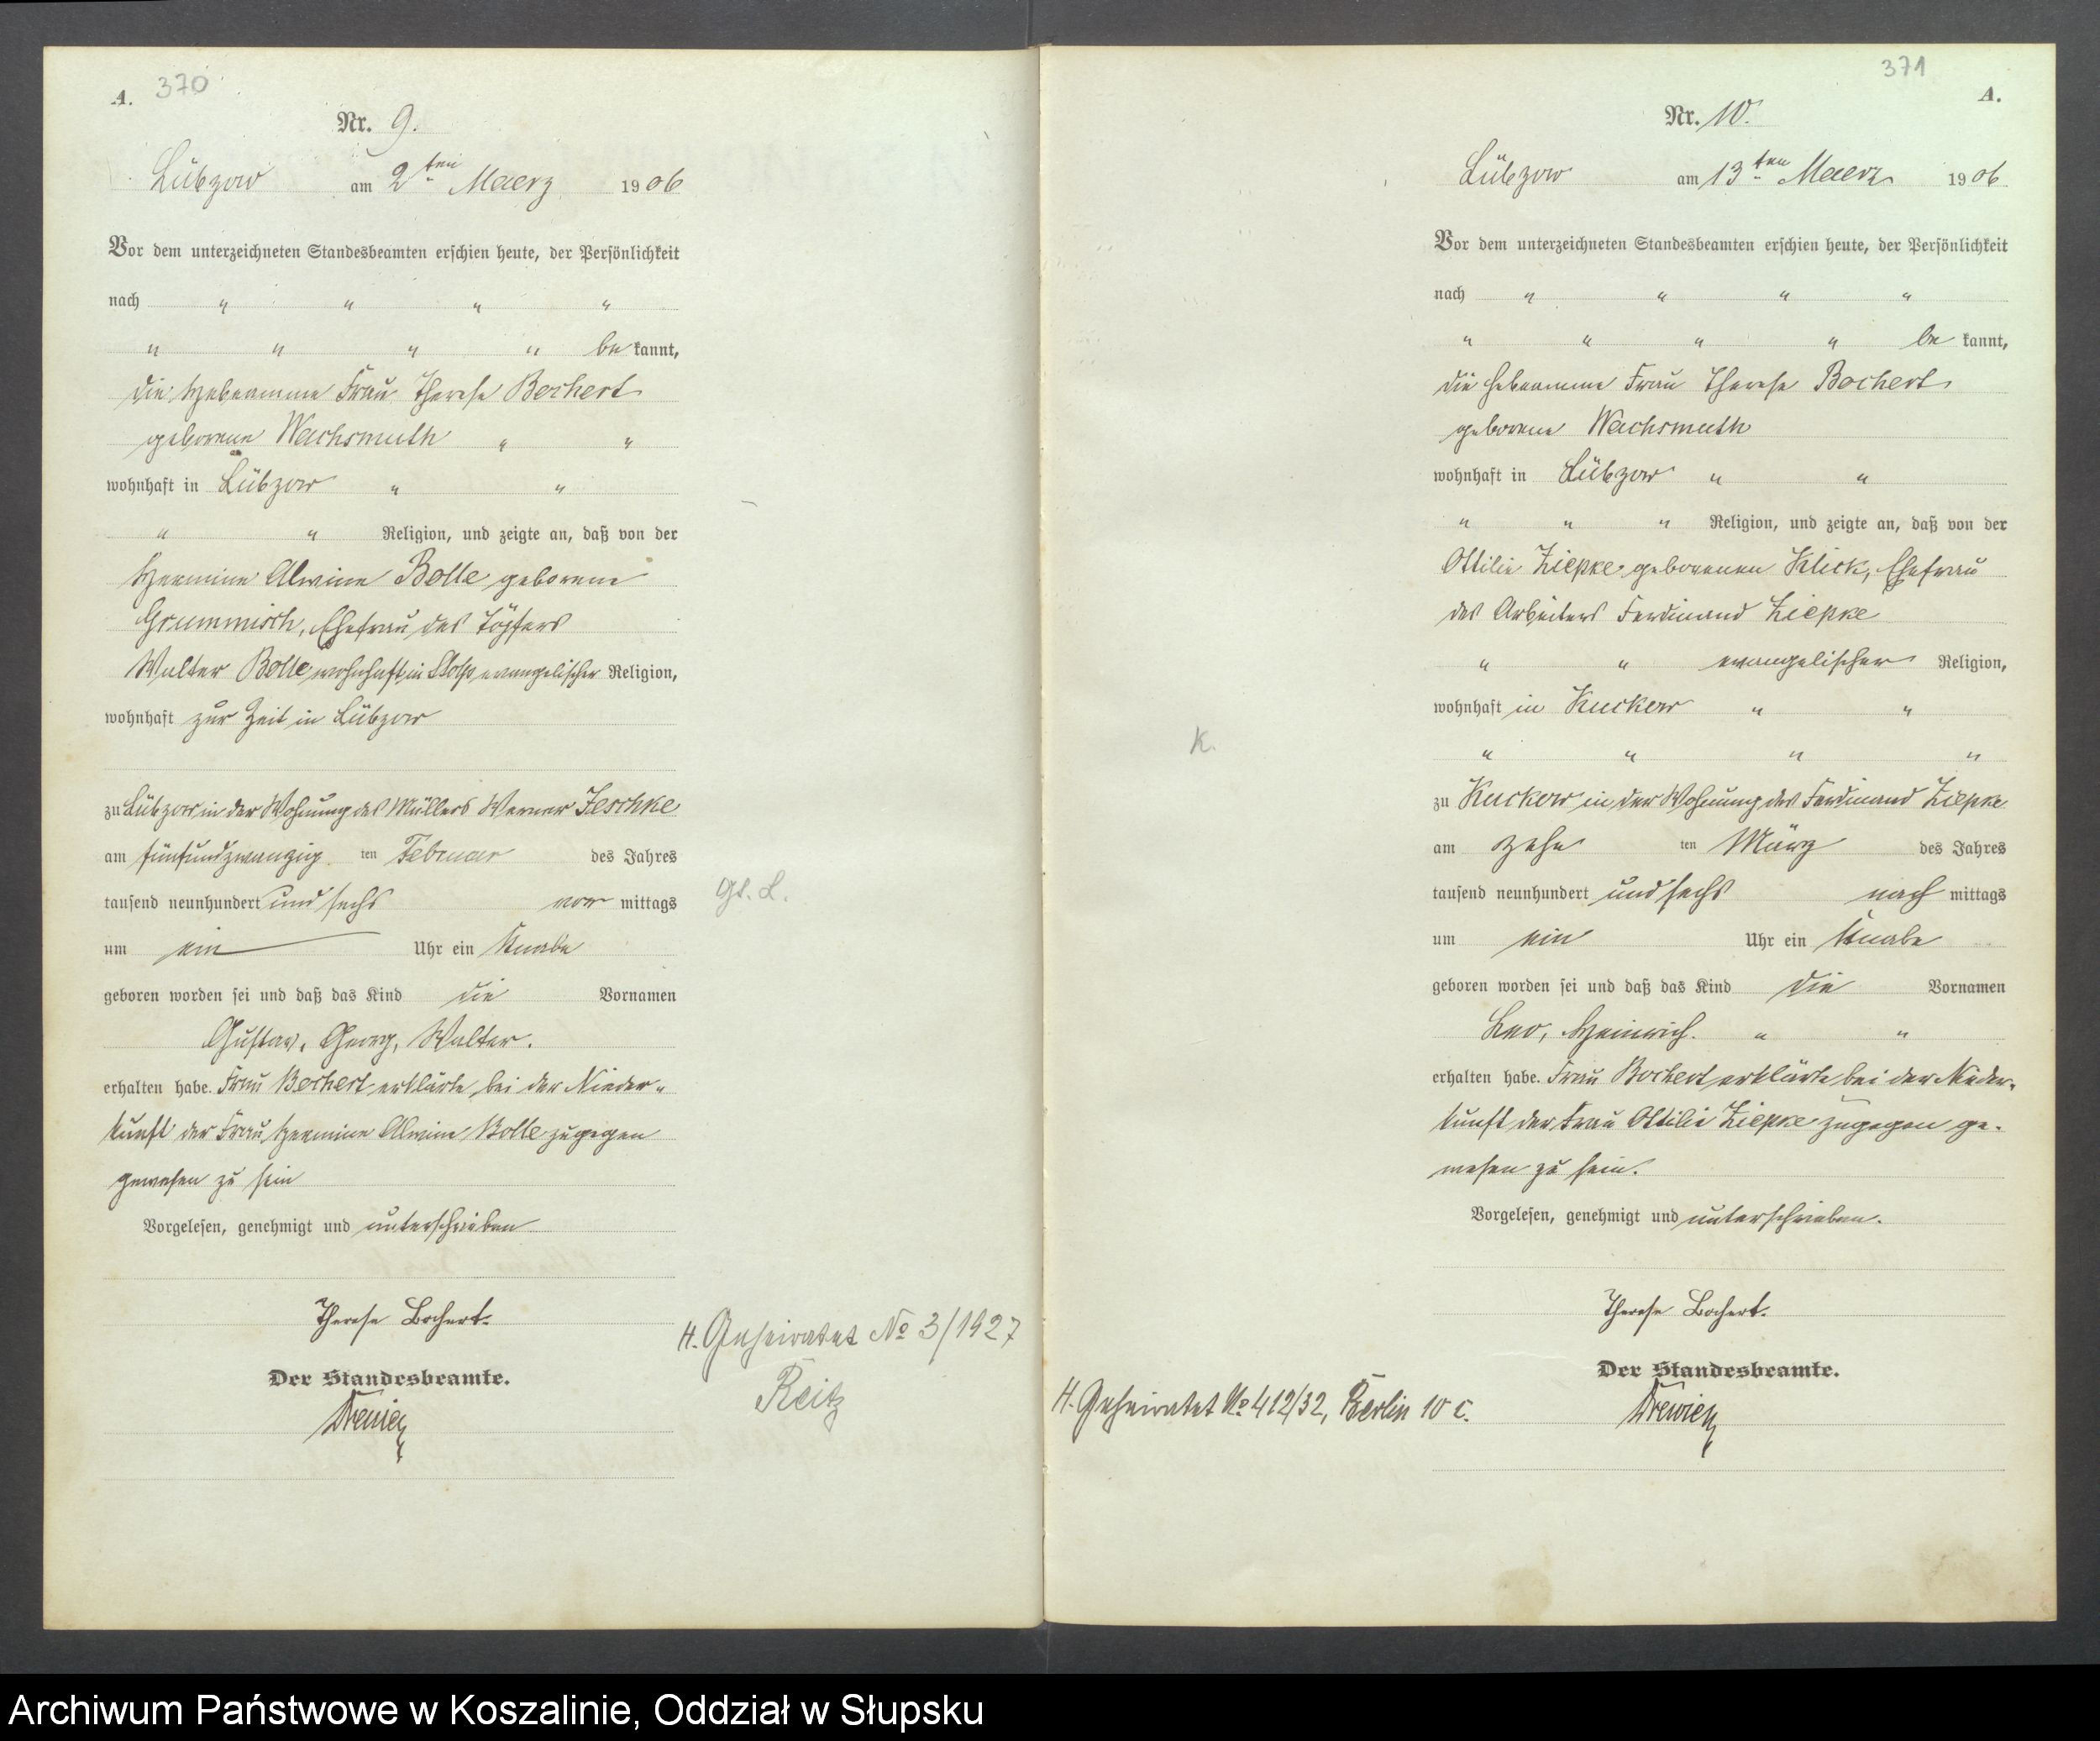 A. 370
Nr. 9.
Lübzow am 2ten Maerz 1906
Vor dem unterzeichneten Standesbeamten erschien heute, der Persönlichkeit
nach " " " "
" " " " be kannt,
die Hebeamme Frau Therese Bochert
geborene Wachsmuth " "
wohnhaft in Lübzow " "
" " Religion, und zeigte an, daß von der
Hermine Alwine Bolle geborene
Grummisch, Ehefrau des Töpfers
Walter Bolle, wohnhaft in Stolp evangelischer Religion,
wohnhaft zur Zeit in Lübzow
zu Lübzow in der Wohnung des Müllers Werner Jeschke
am fünfundzwanzig ten Februar des Jahres
tausend neunhundert und sechs vor mittags
um ein Uhr ein Knabe
geboren worden sei und daß das Kind die Vornamen
Gustav, Georg, Walter.
erhalten habe. Frau Bochert erklärte, bei der Nieder-
kunft der Frau Hermine Alwine Bolle zugegen
gewesen zu sein
Vorgelesen, genehmigt und unterschrieben
Therese Bochert.
Der Standesbeamte.
Gl. L.
H. Geheiratet No 3/1927
Reitz
371
A.
Nr. 10.
Lübzow am 13ten Maerz 1906
Vor dem unterzeichneten Standesbeamten erschien heute, der Persönlichkeit
nach " " " "
" " " " be kannt,
die Hebeamme Frau Therese Bochert
geborene Wachsmuth
wohnhaft in Lübzow " "
" " " Religion, und zeigte an, daß von der
Ottilie Ziepke geborenen Klick, Ehefrau
des Arbeiters Ferdinand Ziepke
" " evangelischer Religion,
wohnhaft in Kuckow " "
" " " "
zu Kuckow in der Wohnung des Ferdinand Ziepke
am zehn ten März des Jahres
tausend neunhundert und sechs nach mittags
um ein Uhr ein Knabe
geboren worden sei und daß das Kind die Vornamen
Leo, Heinrich. " "
erhalten habe. Frau Bochert erklärte bei der Nieder-
kunft der Frau Ottilie Ziepke zugegen ge-
wesen zu sein.
Vorgelesen, genehmigt und unterschrieben.
Therese Bochert.
Der Standesbeamte.
K.
H. Geheiratet No 412/32, Berlin 10 c.
Archiwum Państwowe w Koszalinie, Oddział w Słupsku